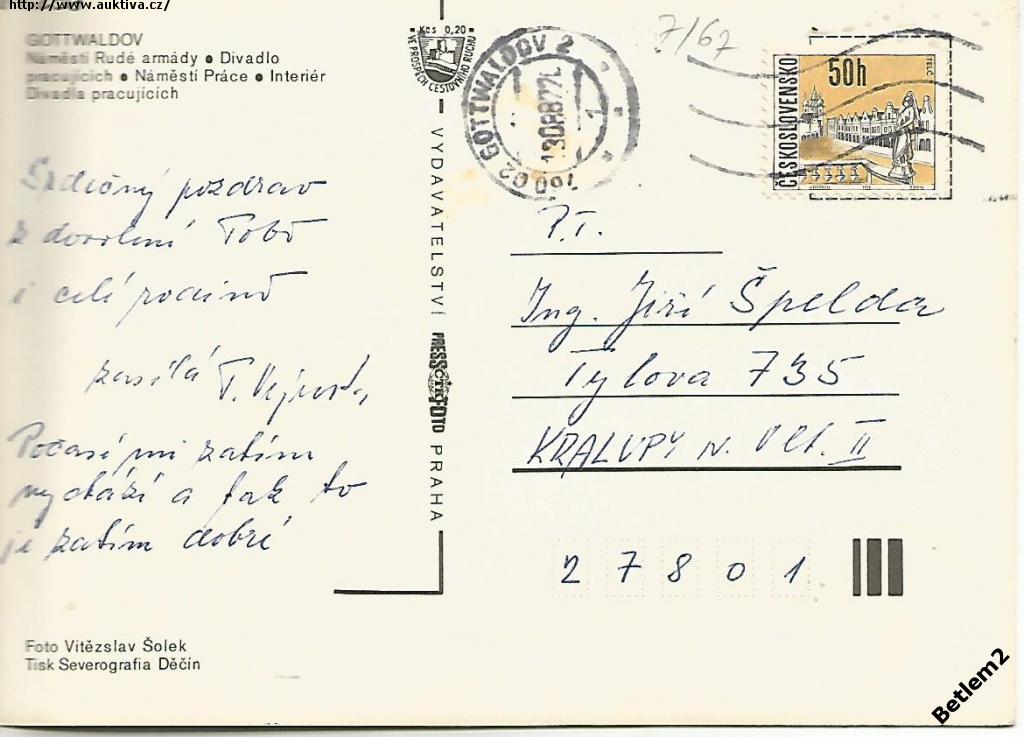 http://www.auktiva.cz/
GOTTWALDOV
Náměstí Rudé armády ● Divadlo
pracujících ● Náměstí Práce ● Interiér
Divadla pracujících
Kčs 0,20
VE PROSPĚCH CESTOVNÍHO RUCHU
GOTTWALDOV 2
760 02
1
7/67
ČESKOSLOVENSKO
50h
TELČ
Srdečný pozdrav
z dovolení Tobě
i celé rodině
zasílá T.
Počasí mi zatím
vychází a tak to
je zatím dobré
VYDAVATELSTVÍ PRESSFOTO PRAHA
ČTK
P.T.
Ing. Jiří Špelda
Tylova 735
KRALUPY N. Vlt. II
27801
Foto Vítězslav Šolek
Tisk Severografia Děčín
Betlem2